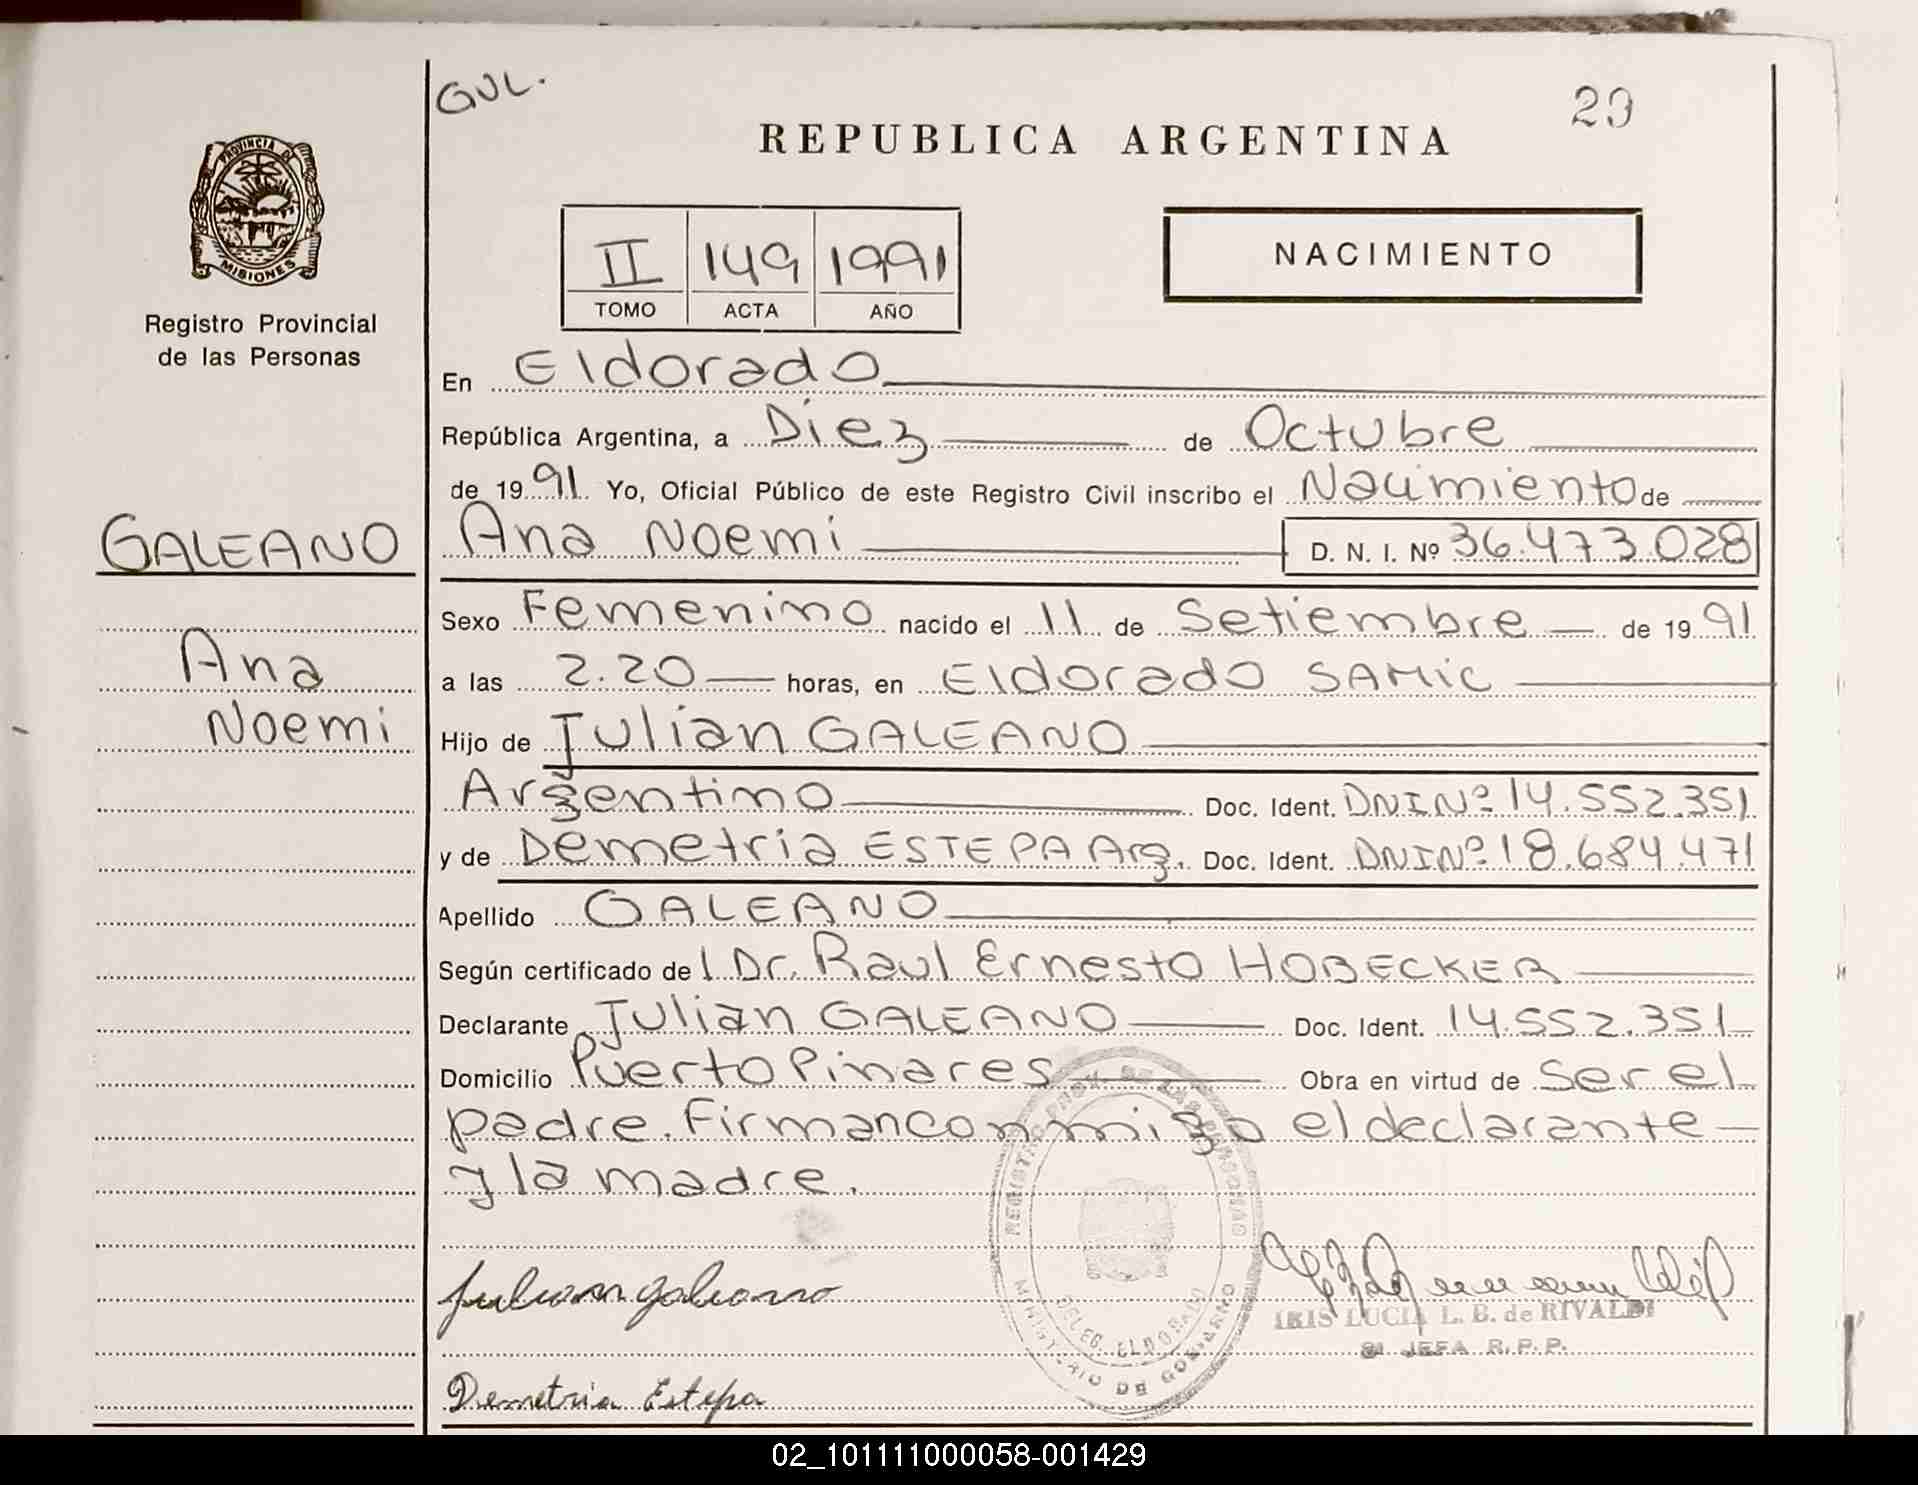 GUL.
29
REPUBLICA ARGENTINA
PROVINCIA DE
MISIONES
Registro Provincial
de las Personas
II 149 1991
TOMO ACTA AÑO
NACIMIENTO
En Eldorado
República Argentina, a Diez de Octubre
de 1991 Yo, Oficial Público de este Registro Civil inscribo el Nacimiento de
GALEANO
Ana Noemi D. N. I. Nº 36.473.028
Sexo Femenino nacido el 11 de Setiembre de 1991
Ana
a las 2.20 horas, en Eldorado SAMIC
Noemi
Hijo de Julian GALEANO
Argentino Doc. Ident. DNI Nº 14.552.351
y de Demetria ESTEPA Arg. Doc. Ident. DNI Nº 18.684.471
Apellido GALEANO
Según certificado del Dr. Raul Ernesto HOBECKER
Declarante Julian GALEANO Doc. Ident. 14.552.351
Domicilio Puerto Pinares Obra en virtud de Ser el
padre. Firman conmigo el declarante
y la madre.
REGISTRO PROV. DE LAS PERSONAS
DELEG. ELDORADO
MINISTERIO DE GOBIERNO
Julian galeano
IRIS LUCIA L. B. de RIVALDI
JEFA R.P.P.
Demetria Estepa
02_101111000058-001429